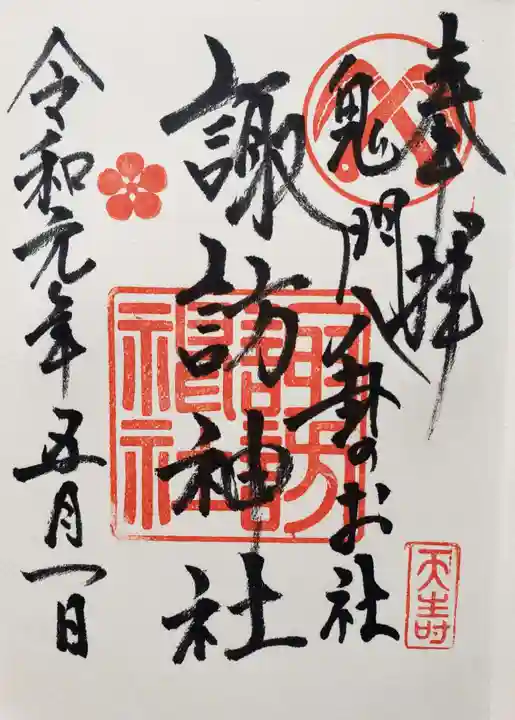 奉拝
鬼門八卦のお社
諏訪神社
令和元年五月一日
諏訪神社
天生町